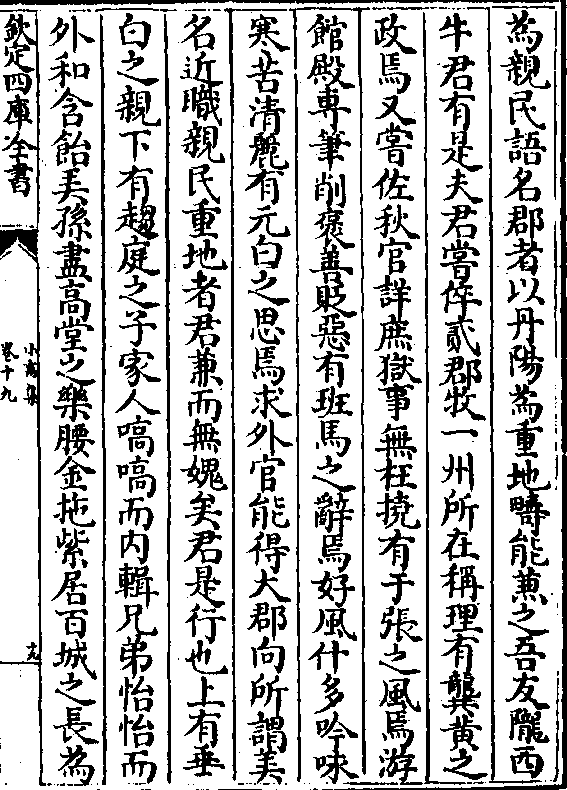 為親民語名郡者以丹陽為重地疇能兼之吾友隴西
牛君有是夫君嘗倅貳郡牧一州所在稱理有龔黄之
政焉又嘗佐秋官詳庶獄事無枉撓有于張之風焉游
館殿專筆削褒善貶惡有班馬之辭焉好風什多吟咏
寒苦清麗有元白之思焉求外官能得大郡向所謂美
名近職親民重地者君兼而無媿矣君是行也上有垂
白之親下有趨庭之子家人嗃嗃而内輯兄弟怡怡而
外和含飴弄孫盡高堂之樂腰金拖紫居百城之長為
欽定四庫全書
小畜集
卷十九